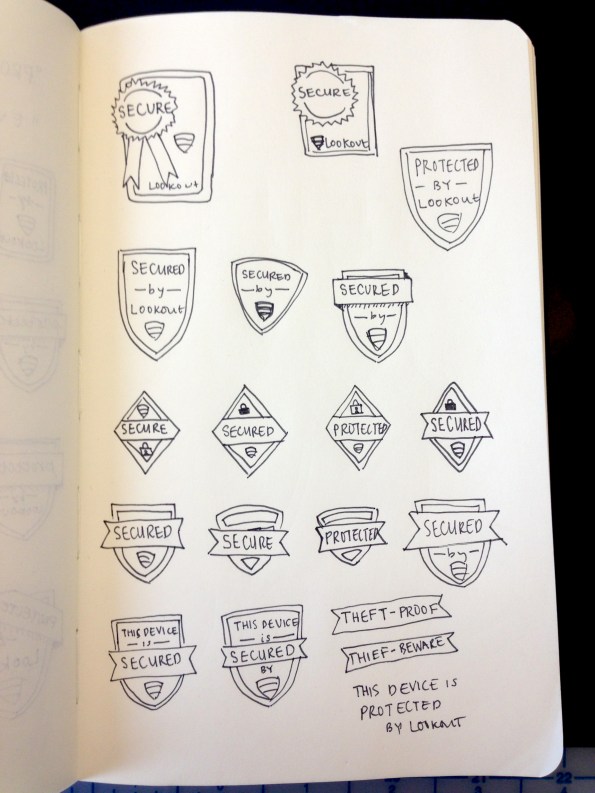 SECURE
LOOKOUT
SECURE
LOOKOUT
PROTECTED
— BY —
LOOKOUT
SECURED
— by —
LOOKOUT
SECURED
— by —
SECURED
— by —
SECURE
SECURED
PROTECTED
SECURED
SECURED
SECURE
PROTECTED
SECURED
— by —
THIS DEVICE
— IS —
SECURED
THIS DEVICE
— is —
SECURED
BY
THEFT-PROOF
THIEF-BEWARE
THIS DEVICE IS
PROTECTED
BY LOOKOUT
22